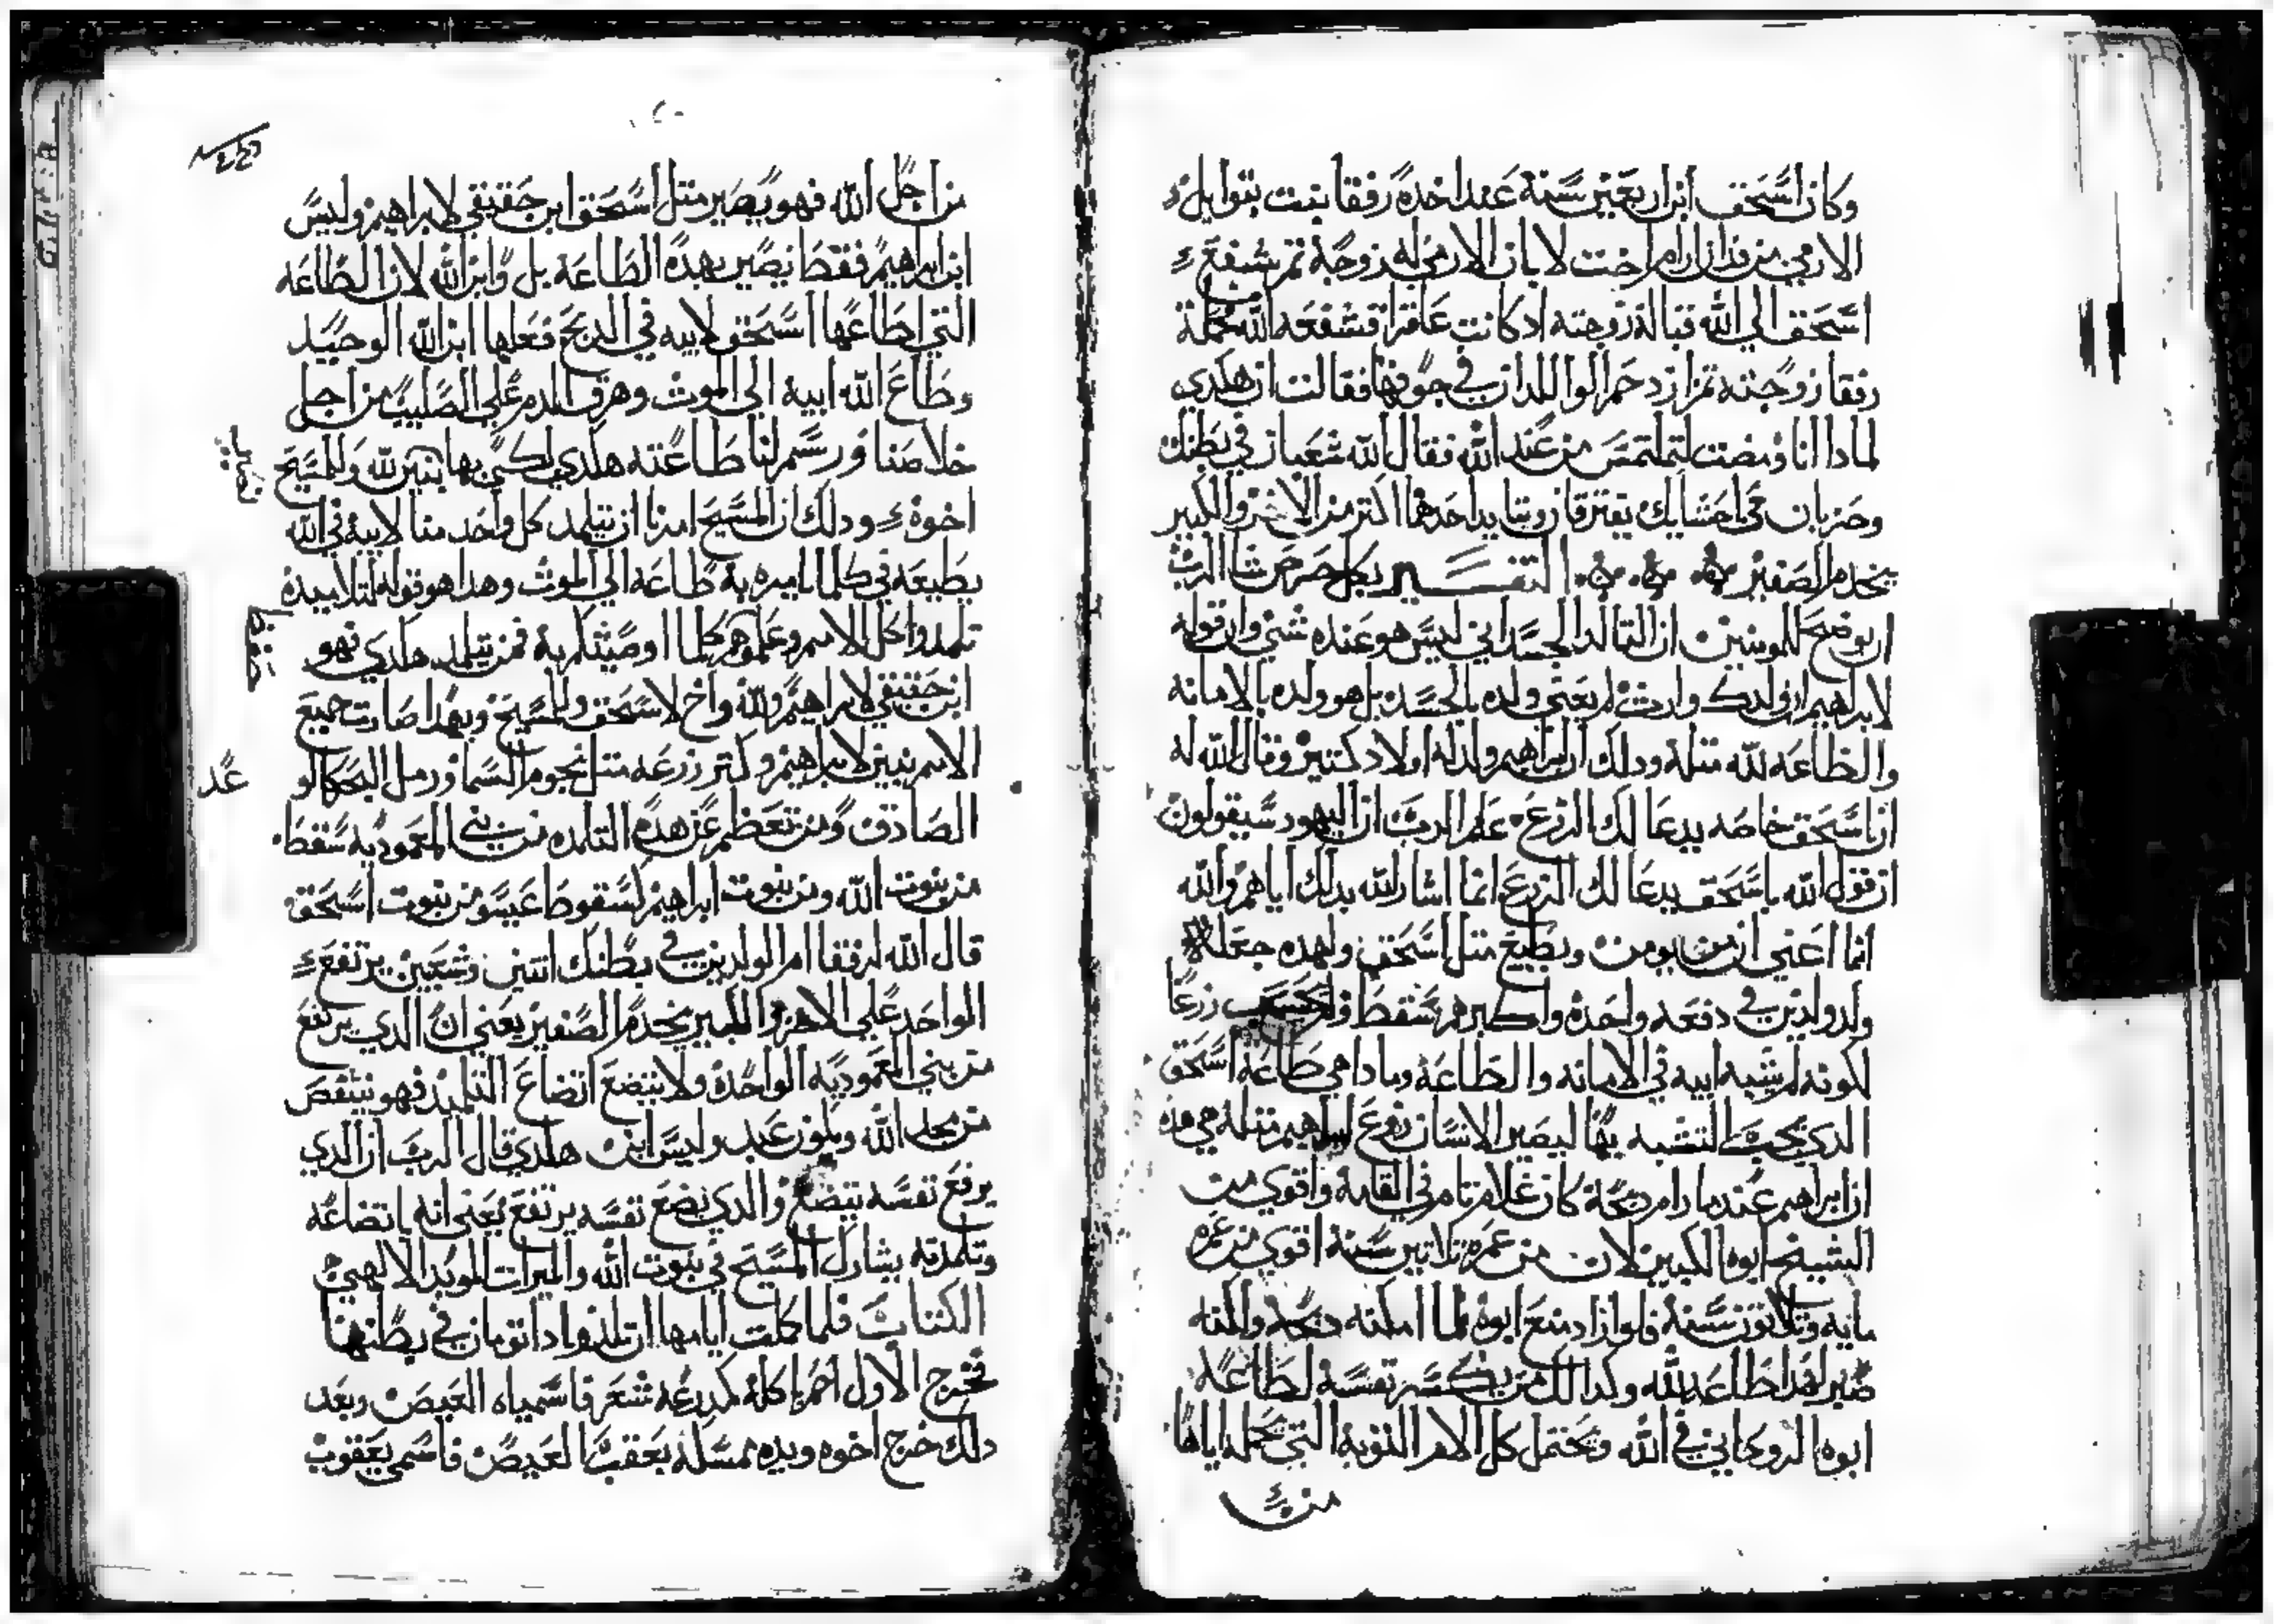 وكان اسحق ابن اربعين سنة عند اخده رفقا بنت بتوايل
الارمي من فدان ارام اخت لابان الارمي له زوجة تم شفع
اسحق الي الله قبالة زوجته اد كانت عاقرا فشفعه الله فحملة
رفقا زوجته تم ازدحم الوالدان في جوفها فقالت ان هكدى
لمادا انا ومضت لتلتمس من عند الله فقال الله شعبان في بطنك
وحزبان في احشايك يفترقا وسايد احدهما اكتر من الاخر والكبير
يخدم الصغير التفسير بكل حرص شا الرب
ان يوضح للمومنين ان التالد الجسداني ليس هو عنده شي وان قوله
لابراهيم اني لدك وارث لم يعني ولده بالجسد بل هو ولده بالامانه
والطاعه لله متله ودلك ان ابراهيم ولد له اولاد كتير وقال الله له
ان باسحق خاصه يدعا لك الزرع علم الرب ان اليهود سيقولون
ان قول الله باسحق يدعا لك الزرع انما اشار الله بدلك اياهم والله
انما اعني ان من يومن ويطيع متل اسحق ولهده جعله
ولد ولدين في دفعه واحده واكبرهم سقط ولم يحسب زرعا
لكونه لم يشبه ابيه في الامانه والطاعة ومادا هي طاعة اسحق
الدي يجب التشبه بها ليصير الانسان زرع لابراهيم متله هي هده
ان ابراهيم عندما رام دبحه كان غلام تام في القامة واقوي من
الشيخ ابوه الكبير لان من عمره تلاتين سنة اقوي من عمره
مايه وتلاتون سنة فلو اراد منع ابوه لما امكنه دبحه ولكنه
صبر لهدا طاعه لله وكدالك من يكسر نفسة لطاعة
ابوه الروحاني في الله ويحتمل كل الامر التوبة التي يحمله اياها
من
من اجل الله فهو يصير متل اسحق ابن حقيقي لابراهيم وليس
ابن ابراهيم فقط نصير بهده الطاعة بل وابن الله لان الطاعه
التي اطاعها اسحق لابيه في الدبح فعلها ابن الله الوحيد
وطاع الله ابيه الي الموت وهرق الدم علي الصليب من اجل
خلاصنا ورسم لنا طاعته هكدي لكي بها بنين لله وللمسيح
اخوة ودلك ان المسيح امرنا ان يتلمد كل واحد منا لابيه في الله
يطيعه في كلما يامره به طاعه الي الموت وهدا هو قوله لتلاميده
تلمدوا كل الامم وعلموهم كلما اوصيتكم به فمن يتلمد هكدي فهو
ابن حقيقي لابراهيم ولله واخ لاسحق وللمسيح وبهدا صارت جميع
الامم بنين لابراهيم وكتر زرعه متل نجوم السما ورمل البحر كالوعد
الصادق ومن تعظم عن هده التلمده من بني المعموديه سقط
من بنوت الله ومن بنوت ابراهيم كسقوط عيسو من بنوت اسحق
قال الله لرفقا ام الولدين في بطنك اتنين وشعبين يرتفع
الواحد علي الاخر والكبير يخدم الصغير يعني ان الدي يرتفع
من بني المعموديه الواحدة ولا يتضع اتضاع التلميد فهو ينتقص
من مجد الله ويكون عبد وليس ابن هكدي قال الرب ان الدي
يرفع نفسه يتضع والدي يضع نفسه يرتفع يعني انه باتضاعه
وتلمدته يشارك المسيح في بنوت الله والميرات الموبد الالاهي
الكتاب فلما كملت ايامها ان تلد واد اتومان في بطنها
فخرج الاول احمرا كله كمدرعه شعر فاسمياه العيص وبعد
دلك خرج اخوه ويده ممسكه بعقب العيص فاسمي يعقوب